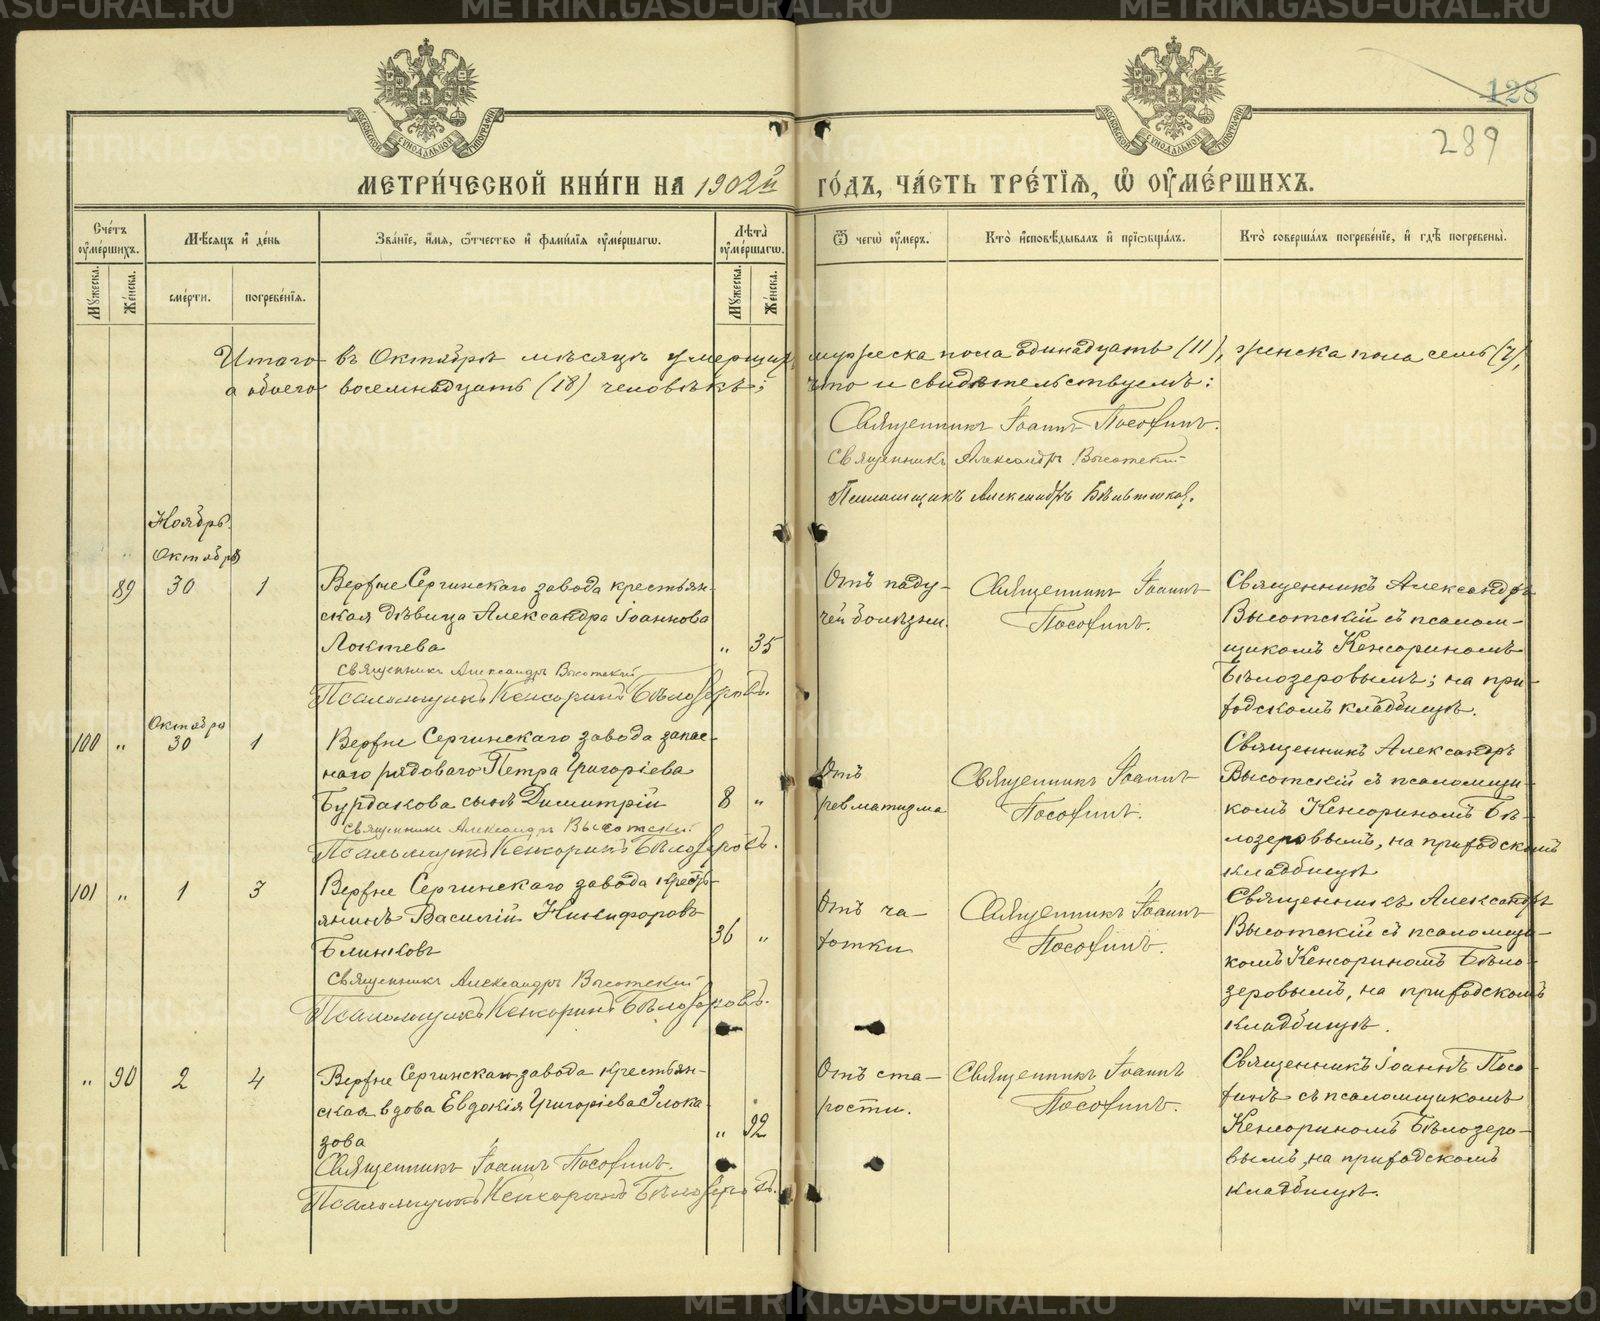 128
289
МЕТРИ́ЧЕСКОЙ КНИ́ГИ НА 1902й ГО́ДЪ, ЧА́СТЬ ТРЕ́ТІЯ, Ѡ ОУ҆МЕ́РШИХЪ.
Сче́тъ оу҆ме́ршихъ.
Мѣ́сяцъ и҆ де́нь
Зва́нїе, и҆мя, ѻ҆́тчество и҆ фами́лїя оу҆ме́ршагѡ.
Лѣта̀ оу҆ме́ршагѡ.
Ѿ чегѡ̀ оу҆́меръ.
Кто̀ и҆сповѣ́дывалъ и҆ прїѡбща́лъ.
Кто̀ соверша́лъ погребе́нїе, и҆ гдѣ̀ погребены̀.
Му́жеска.
Же́нска.
сме́рти.
погребе́нїя.
Му́жеска.
Же́нска.
Итого въ Октябрѣ мѣсяцѣ умерших мужеска пола одинадцать (11), женска пола семь (7),
а обоего восемнадцать (18) человѣкъ; что и свидѣтельствуемъ:
Священникъ Іоаннъ Посохинъ.
Священникъ Александръ Высотскій
Псаломщикъ Александръ
Ноябрь.
Октября
89 30 1
Верхне Сергинскаго завода крестьян-
ская дѣвица Александра Іоаннова
Локтева
„ 35
Священникъ Александръ Высотскій
Псаломщикъ Кенсоринъ Бѣлозеровъ.
Отъ паду-
чей болѣзни.
Священникъ Іоаннъ
Посохинъ.
Священникъ Александръ
Высотскій съ псалом-
щикомъ Кенсориномъ
Бѣлозеровымъ; на при-
ходскомъ кладбищѣ.
Октября
100 „ 30 1
Верхне Сергинскаго завода запас-
наго рядоваго Петра Григоріева
Бурдакова сынъ Димитрій
8 „
Священникъ Александръ Высотскій
Псаломщикъ Кенсоринъ Бѣлозеровъ.
Отъ
ревматизма
Священникъ Іоаннъ
Посохинъ.
Священникъ Александръ
Высотскій съ псаломщи-
комъ Кенсориномъ Бѣ-
лозеровымъ, на приходскомъ
кладбищѣ
101 „ 1 3
Верхне Сергинскаго завода кресть-
янинъ Василій Никифоровъ
Блиновъ
36 „
Священникъ Александръ Высотскій
Псаломщикъ Кенсоринъ Бѣлозеровъ.
Отъ ча-
хотки
Священникъ Іоаннъ
Посохинъ.
Священникъ Александръ
Высотскій съ псаломщи-
комъ Кенсориномъ Бѣло-
зеровымъ, на приходскомъ
кладбищѣ.
„ 90 2 4
Верхне Сергинскаго завода крестьян-
ская вдова Евдокія Григоріева Злока-
зова
„ 92
Священникъ Іоаннъ Посохинъ.
Псаломщикъ Кенсоринъ Бѣлозеровъ.
Отъ ста-
рости.
Священникъ Іоаннъ
Посохинъ.
Священникъ Іоаннъ Посо-
хинъ съ псаломщикомъ
Кенсориномъ Бѣлозеро-
вымъ, на приходскомъ
кладбищѣ.